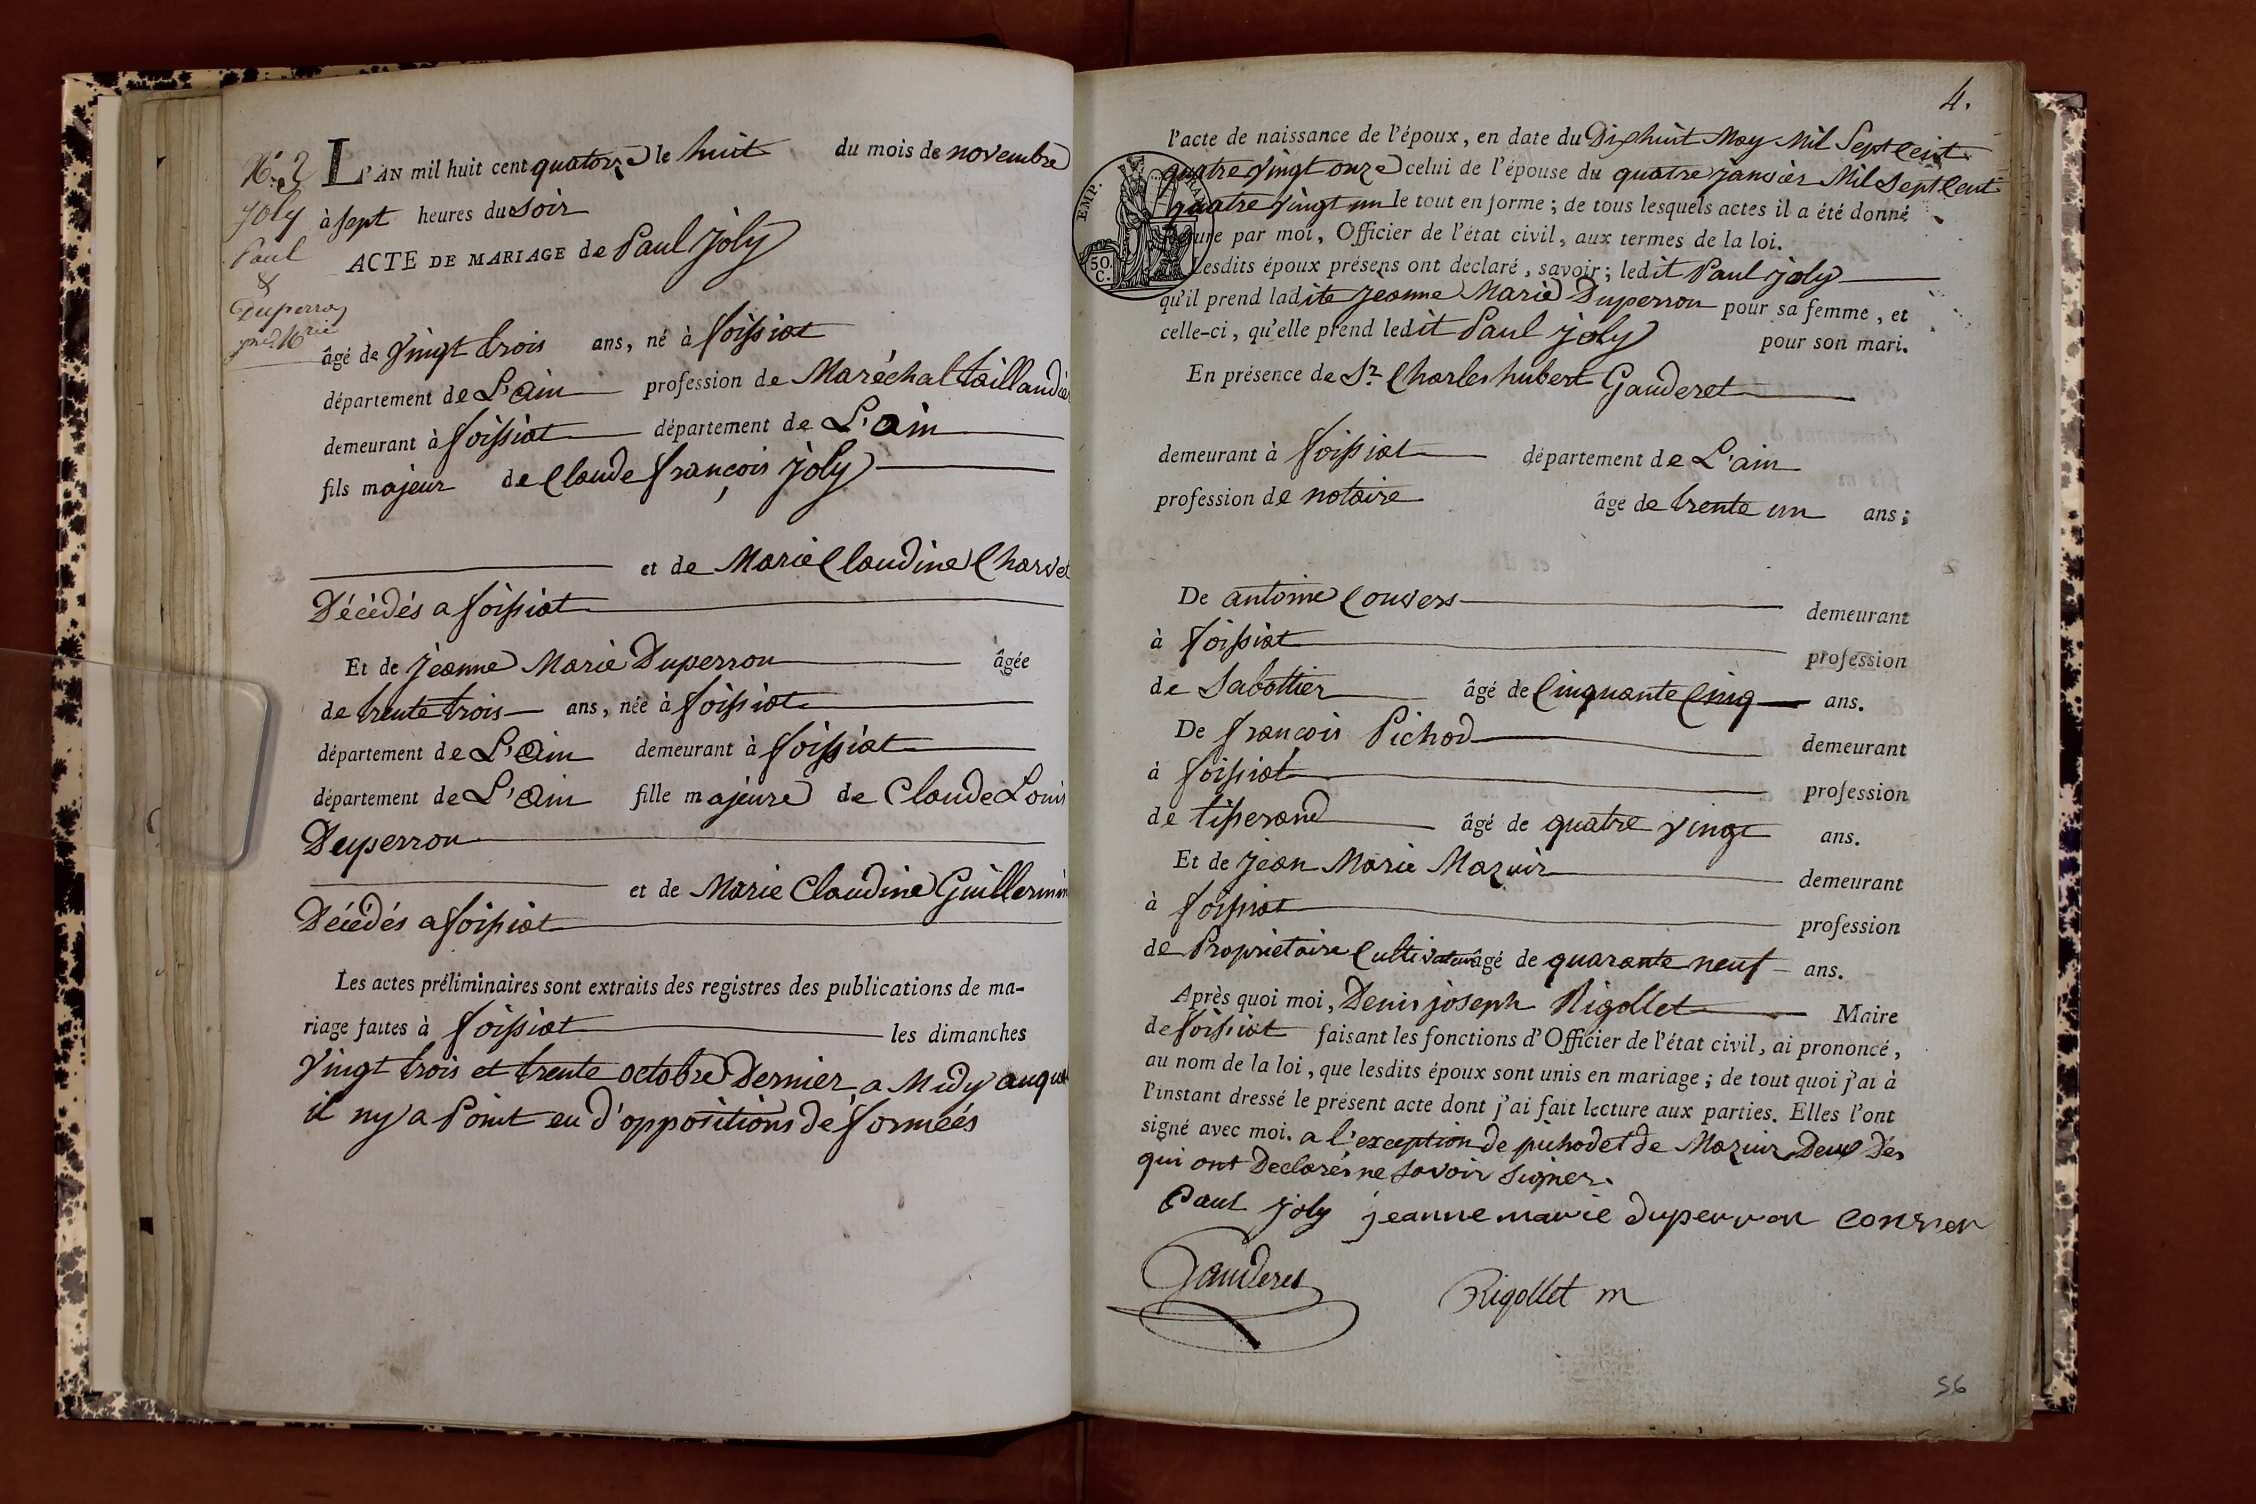 N.° 2
Joly
Paul
&
Duperron
L'AN mil huit cent quatorze le huit du mois de novembre
à sept heures du soir
ACTE DE MARIAGE de Paul joly
âgé de vingt trois ans, né à foissiat
département de L'ain profession de Maréchal taillandier
demeurant à foissiat département de L'ain
fils majeur de Claude françois joly
et de Marie Claudine Charvet
Décédés a foissiat
Et de jeanne Marie Duperron âgée
de trente trois ans, née à foissiat
département de L'ain demeurant à foissiat
département de L'ain fille majeure de Claude Louis
Duperron
et de Marie Claudine Guillermin
Décédés a foissiat
Les actes préliminaires sont extraits des registres des publications de ma-
riage faites à foissiat les dimanches
vingt trois et trente octobre Dernier a Midy
il ny a Point eu d'oppositions de formeés
4.
l'acte de naissance de l'époux, en date du Dix huit May Mil Sept Cent
quatre vingt onze celui de l'épouse du quatre janvier Mil Sept Cent
quatre vingt un le tout en forme ; de tous lesquels actes il a été donné
lecture par moi, Officier de l'état civil, aux termes de la loi.
EMP.
50.
C.
Lesdits époux présens ont declaré, savoir ; ledit Paul joly
qu'il prend ladite jeanne Marie Duperron pour sa femme, et
celle-ci, qu'elle prend ledit Paul joly pour son mari.
En présence de Sr. Charles hubert Gauderet
demeurant à foissiat département de L'ain
profession de notaire âgé de trente un ans ;
De antoine Convers demeurant
à foissiat profession
de Sabottier âgé de Cinquante Cinq ans.
De françois Pichod demeurant
à foissiat profession
de tisserand âgé de quatre vingt ans.
Et de jean Marie Mazuir demeurant
à foissiat profession
de Proprietaire Cultivateur âgé de quarante neuf ans.
Après quoi moi, Denis joseph Rigollet Maire
de foissiat faisant les fonctions d'Officier de l'état civil, ai prononcé,
au nom de la loi, que lesdits époux sont unis en mariage ; de tout quoi j'ai à
l'instant dressé le présent acte dont j'ai fait lecture aux parties. Elles l'ont
signé avec moi. a l'exception de pichod et de Mazuir
qui ont Declarés ne savoir signer.
Paul joly jeanne marie duperron
Gauderet
Rigollet m
56